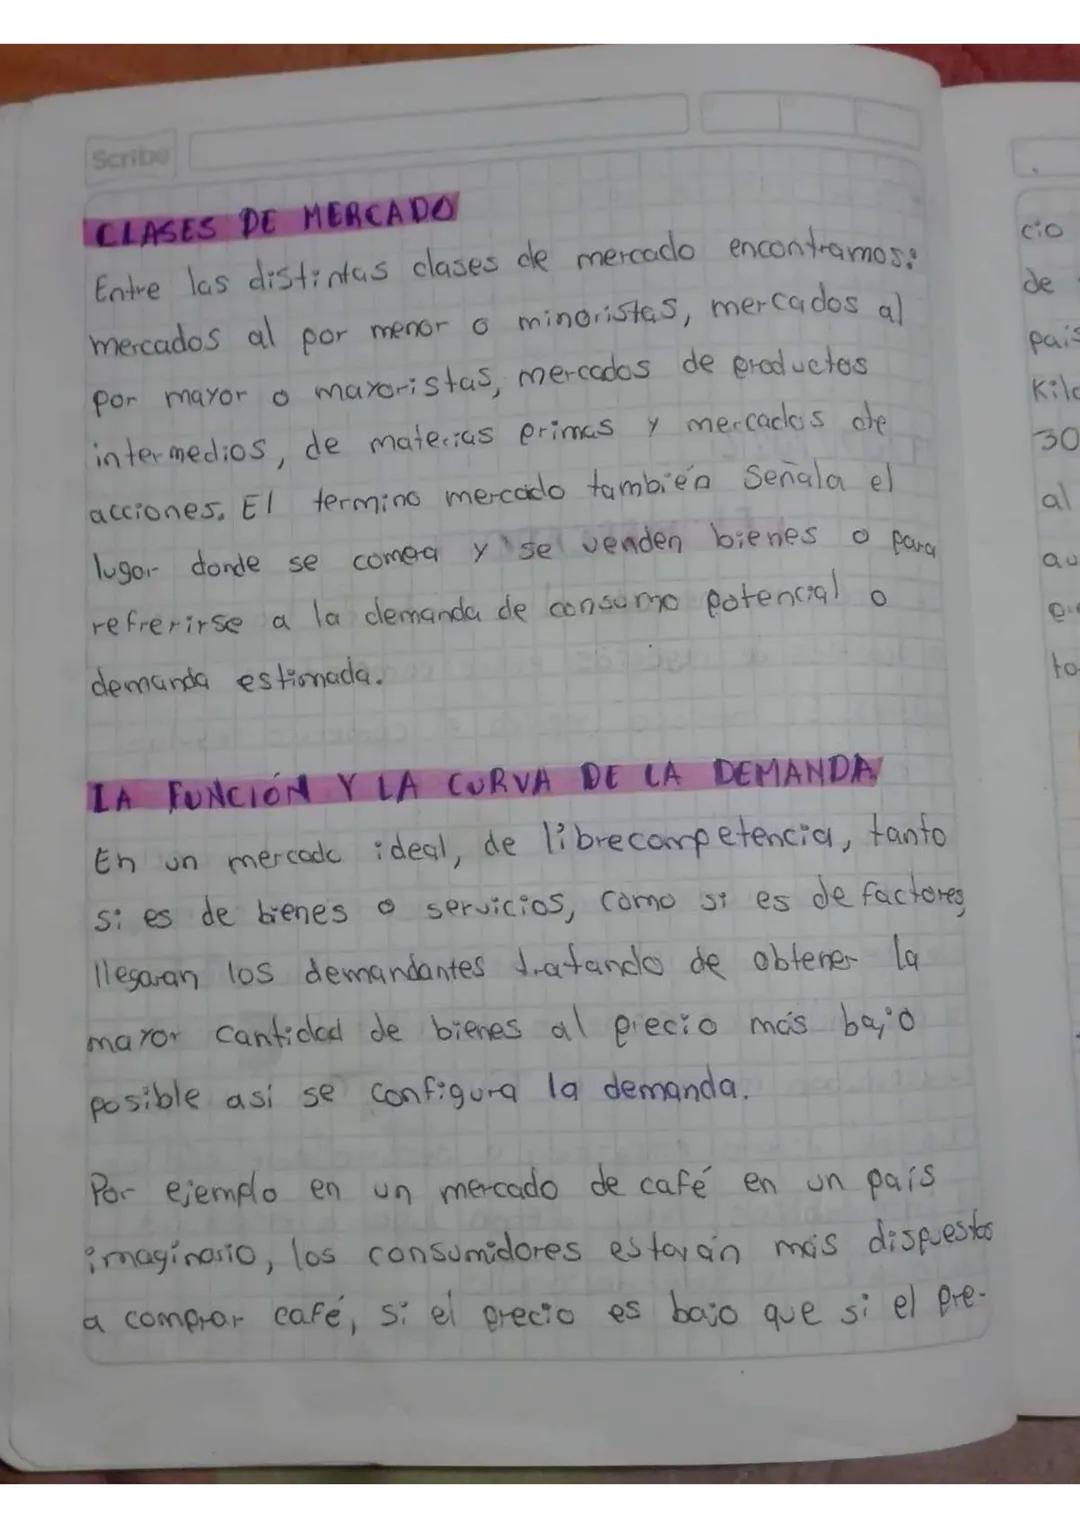 Scribe
CLASES DE MERCADO
Entre las distintas clases de mercado encontramos:
mercados al por menor o minoristas, mercados al
por mayor o mayoristas, mercados de productos
intermedios, de materias primas y mercados de
acciones. El termino mercado también señala el
lugar donde se compra y se venden bienes o para
refrerirse a la demanda de consumo potencial o
demanda estimada.
LA FUNCIÓN Y LA CURVA DE LA DEMANDA
En un mercado ideal, de librecompetencia, tanto
si es de bienes o servicios, como si es de factores,
llegaran los demandantes tratando de obtener la
mayor cantidad de bienes al precio más bajo
posible así se configura la demanda.
Por ejemplo en un mercado de café en un país
imaginario, los consumidores estarán más dispuestos
a comprar café, si el precio es bajo que si el pre-
cio
de
país
Kilo
30
al